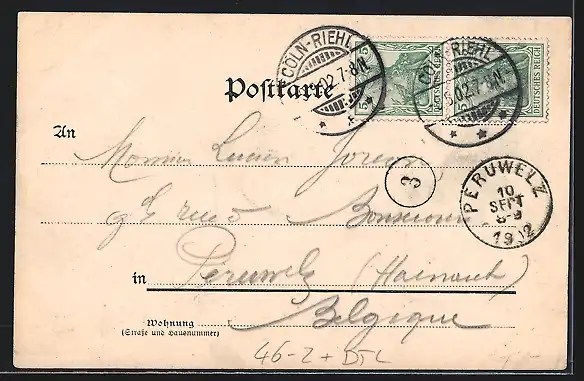 CÖLN-RIEHL
02.7-8N.
CÖLN-RIEHL
02.7-8N.
5
DEUTSCHES REICH
DEUTSCHES REICH
Postkarte
An
Monsieur Lucien
3
PERUWELZ
10
SEPT
8-9
1902
rue
in Peruwelz (Hainaut)
Wohnung
Belgique
(Straße und Hausnummer)
46-2 +